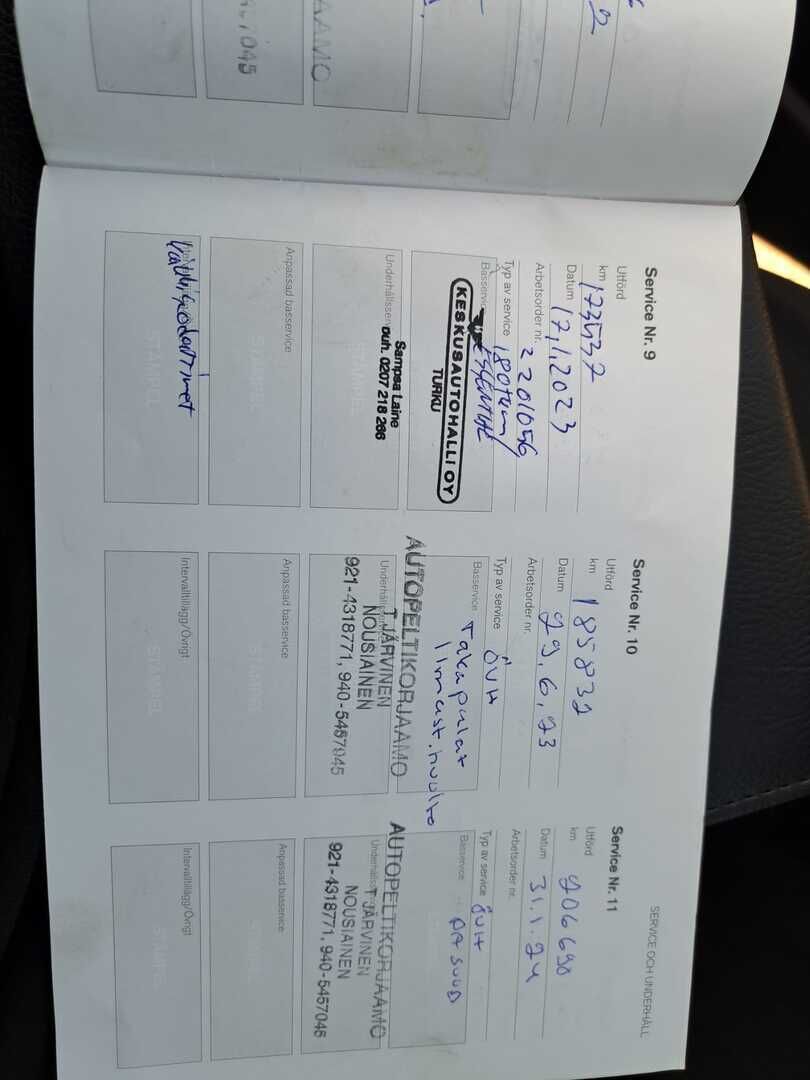 SERVICE OCH UNDERHÅLL
Service Nr. 9
Utförd
km 173537
Datum 17,1,2023
Arbetsorder nr. 2201056
Typ av service 180tkm/
Basservice
KESKUSAUTOHALLI OY
TURKU
Underhållsser
Sampsa Laine
puh. 0207 218 266
STÄMPEL
Anpassad basservice
STÄMPEL
STÄMPEL
Service Nr. 10
Utförd
km 185832
Datum 29,6,23
Arbetsorder nr.
Typ av service ÖVH
Basservice Takapalat
Ilmast.huolto
AUTOPELTIKORJAAMO
T JÄRVINEN
NOUSIAINEN
921-4318771, 940-5457045
Anpassad basservice
STÄMPEL
Intervalltillägg/Övrigt
STÄMPEL
Service Nr. 11
Utförd
km 206690
Datum 31.1.24
Arbetsorder nr.
Typ av service ÖVH
Basservice
AUTOPELTIKORJAAMO
T JÄRVINEN
NOUSIAINEN
921-4318771, 940-5457045
Anpassad basservice
Intervalltillägg/Övrigt
STÄMPEL